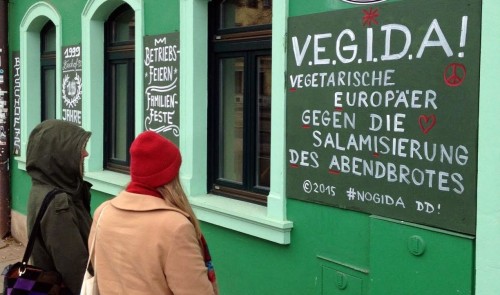 BISCHOFS
1999
25
JAHRE
BETRIEBS-
FEIERN
FAMILIEN-
FESTE
V.E.G.I.D.A!
VEGETARISCHE
EUROPÄER
GEGEN DIE
SALAMISIERUNG
DES ABENDBROTES
©2015 #NOGIDA DD!